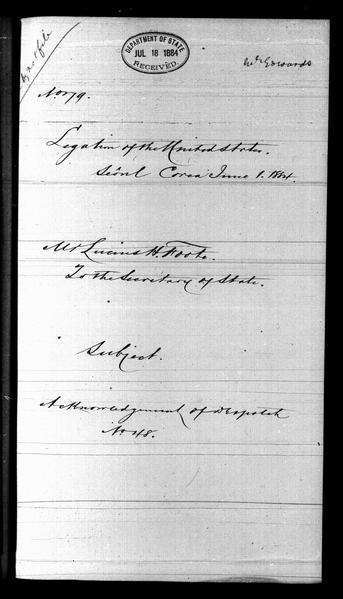 DEPARTMENT OF STATE
JUL 18 1884
RECEIVED.
Mr Edwards
file
No. 79.
Legation of the United States.
Seoul Corea June 1. 1884.
Mr Lucius H. Foote.
To the Secretary of State.
Subject.
Acknowledgement of despatch
No 48.